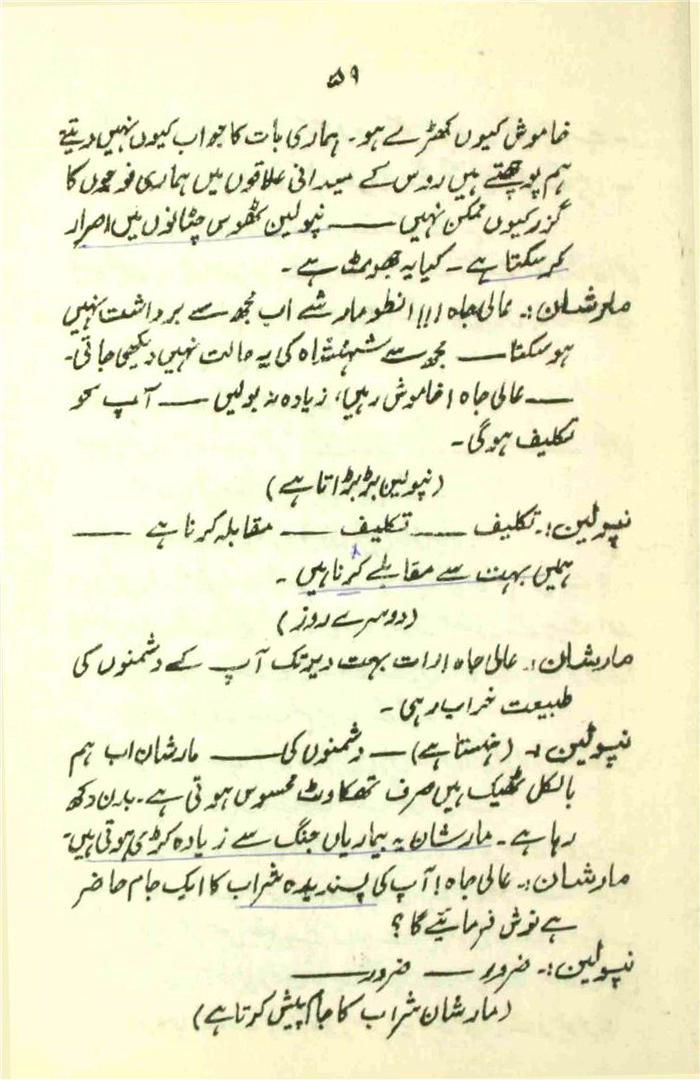 ۵۹
خاموش کیوں کھڑے ہو۔ ہماری بات کا جواب کیوں نہیں دیتے
ہم پوچھتے ہیں روس کے میدانی علاقوں میں ہماری فوجوں کا
گزر کیوں ممکن نہیں —— نپولین ٹھوس چٹانوں میں اصرار
کر سکتا ہے۔ کیا یہ جھوٹ ہے۔
مارشان:۔ عالی جاہ !!! انطومارشے اب مجھ سے برداشت نہیں
ہو سکتا —— مجھ سے شہنشاہ کی یہ حالت نہیں دیکھی جاتی۔
—— عالی جاہ ! خاموش رہیں، زیادہ نہ بولیں —— آپ کو
تکلیف ہو گی۔
(نپولین بڑبڑاتا ہے)
نپولین:۔ تکلیف —— تکلیف —— مقابلہ کرنا ہے ——
ہمیں بہت سے مقابلے کرنا ہیں۔
(دوسرے روز)
مارشان:۔ عالی جاہ ! رات بہت دیر تک آپ کے دشمنوں کی
طبیعت خراب رہی۔
نپولین:۔ (ہنستا ہے) — دشمنوں کی —— مارشان اب ہم
بالکل ٹھیک ہیں صرف تھکاوٹ محسوس ہوتی ہے۔ بدن دکھ
رہا ہے۔ مارشان یہ بیماریاں جنگ سے زیادہ کڑی ہوتی ہیں۔
مارشان:۔ عالی جاہ ! آپ کی پسندیدہ شراب کا ایک جام حاضر
ہے نوش فرمائیے گا ؟
نپولین:۔ ضرور —— ضرور ——
(مارشان شراب کا جام پیش کرتا ہے)